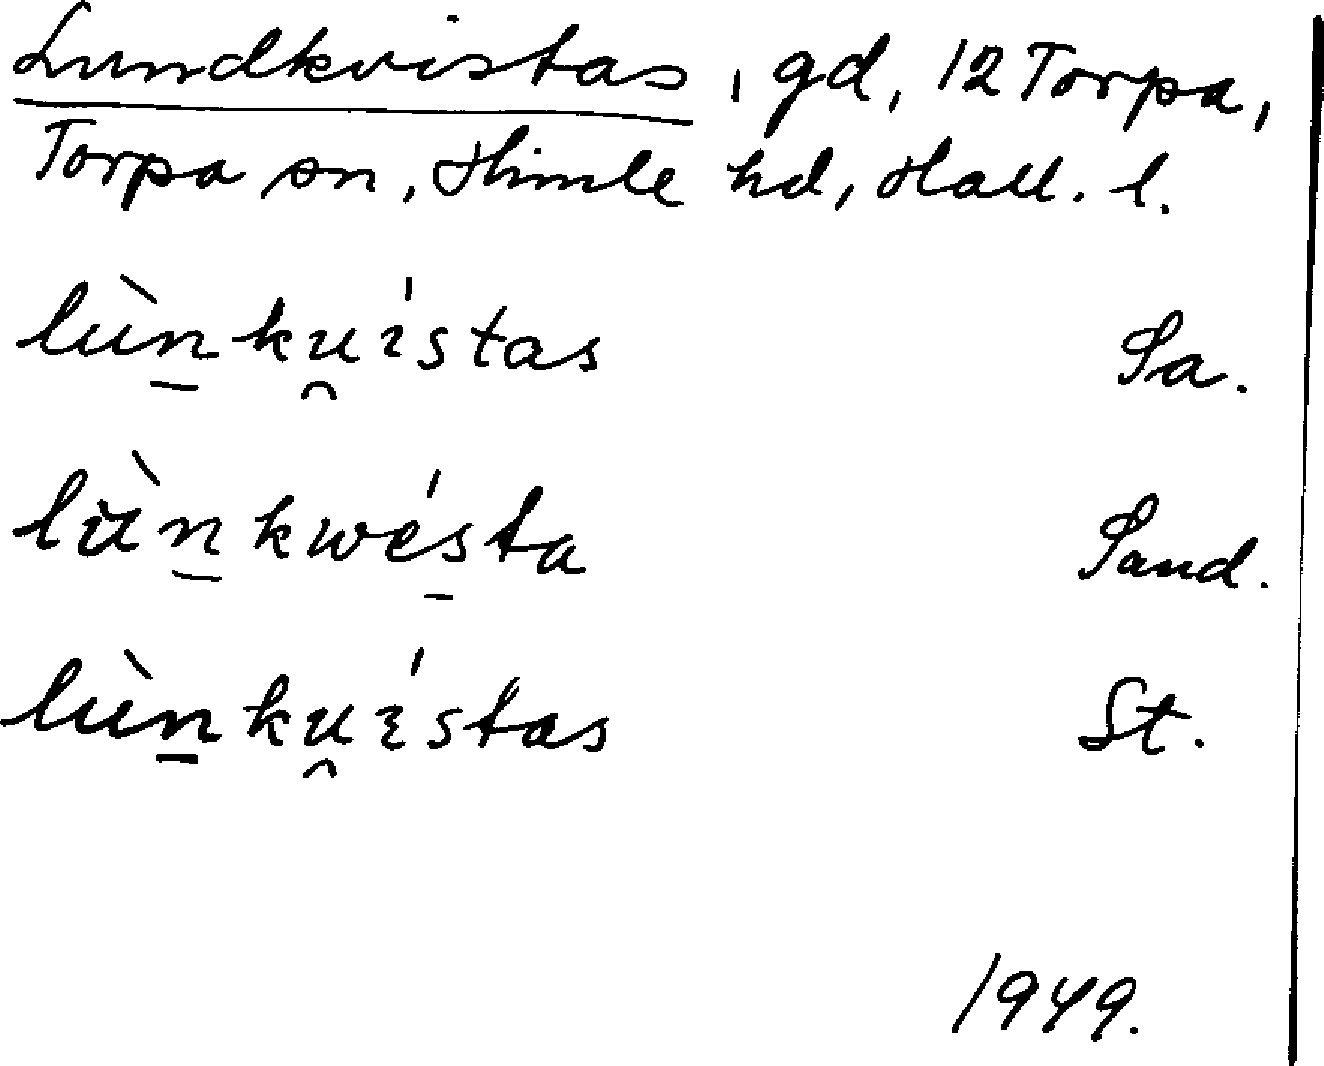 Lundkvistas, gd, 12 Torpa,
Torpa sn, Himle hd, Hall. l.
lùn̲ku̯ɩ́stas Sa.
lùn̲kwés̲ta Sand.
lùn̲ku̯ɩ́stas St.
1949.